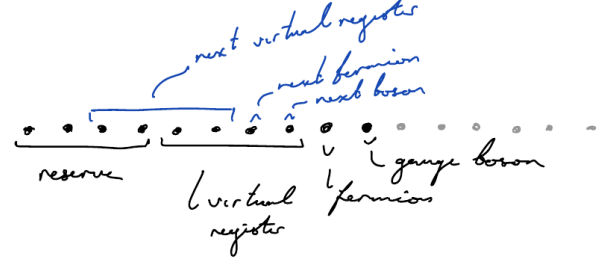 next virtual register
next fermion
next boson
reserve
virtual
register
fermion
gauge boson